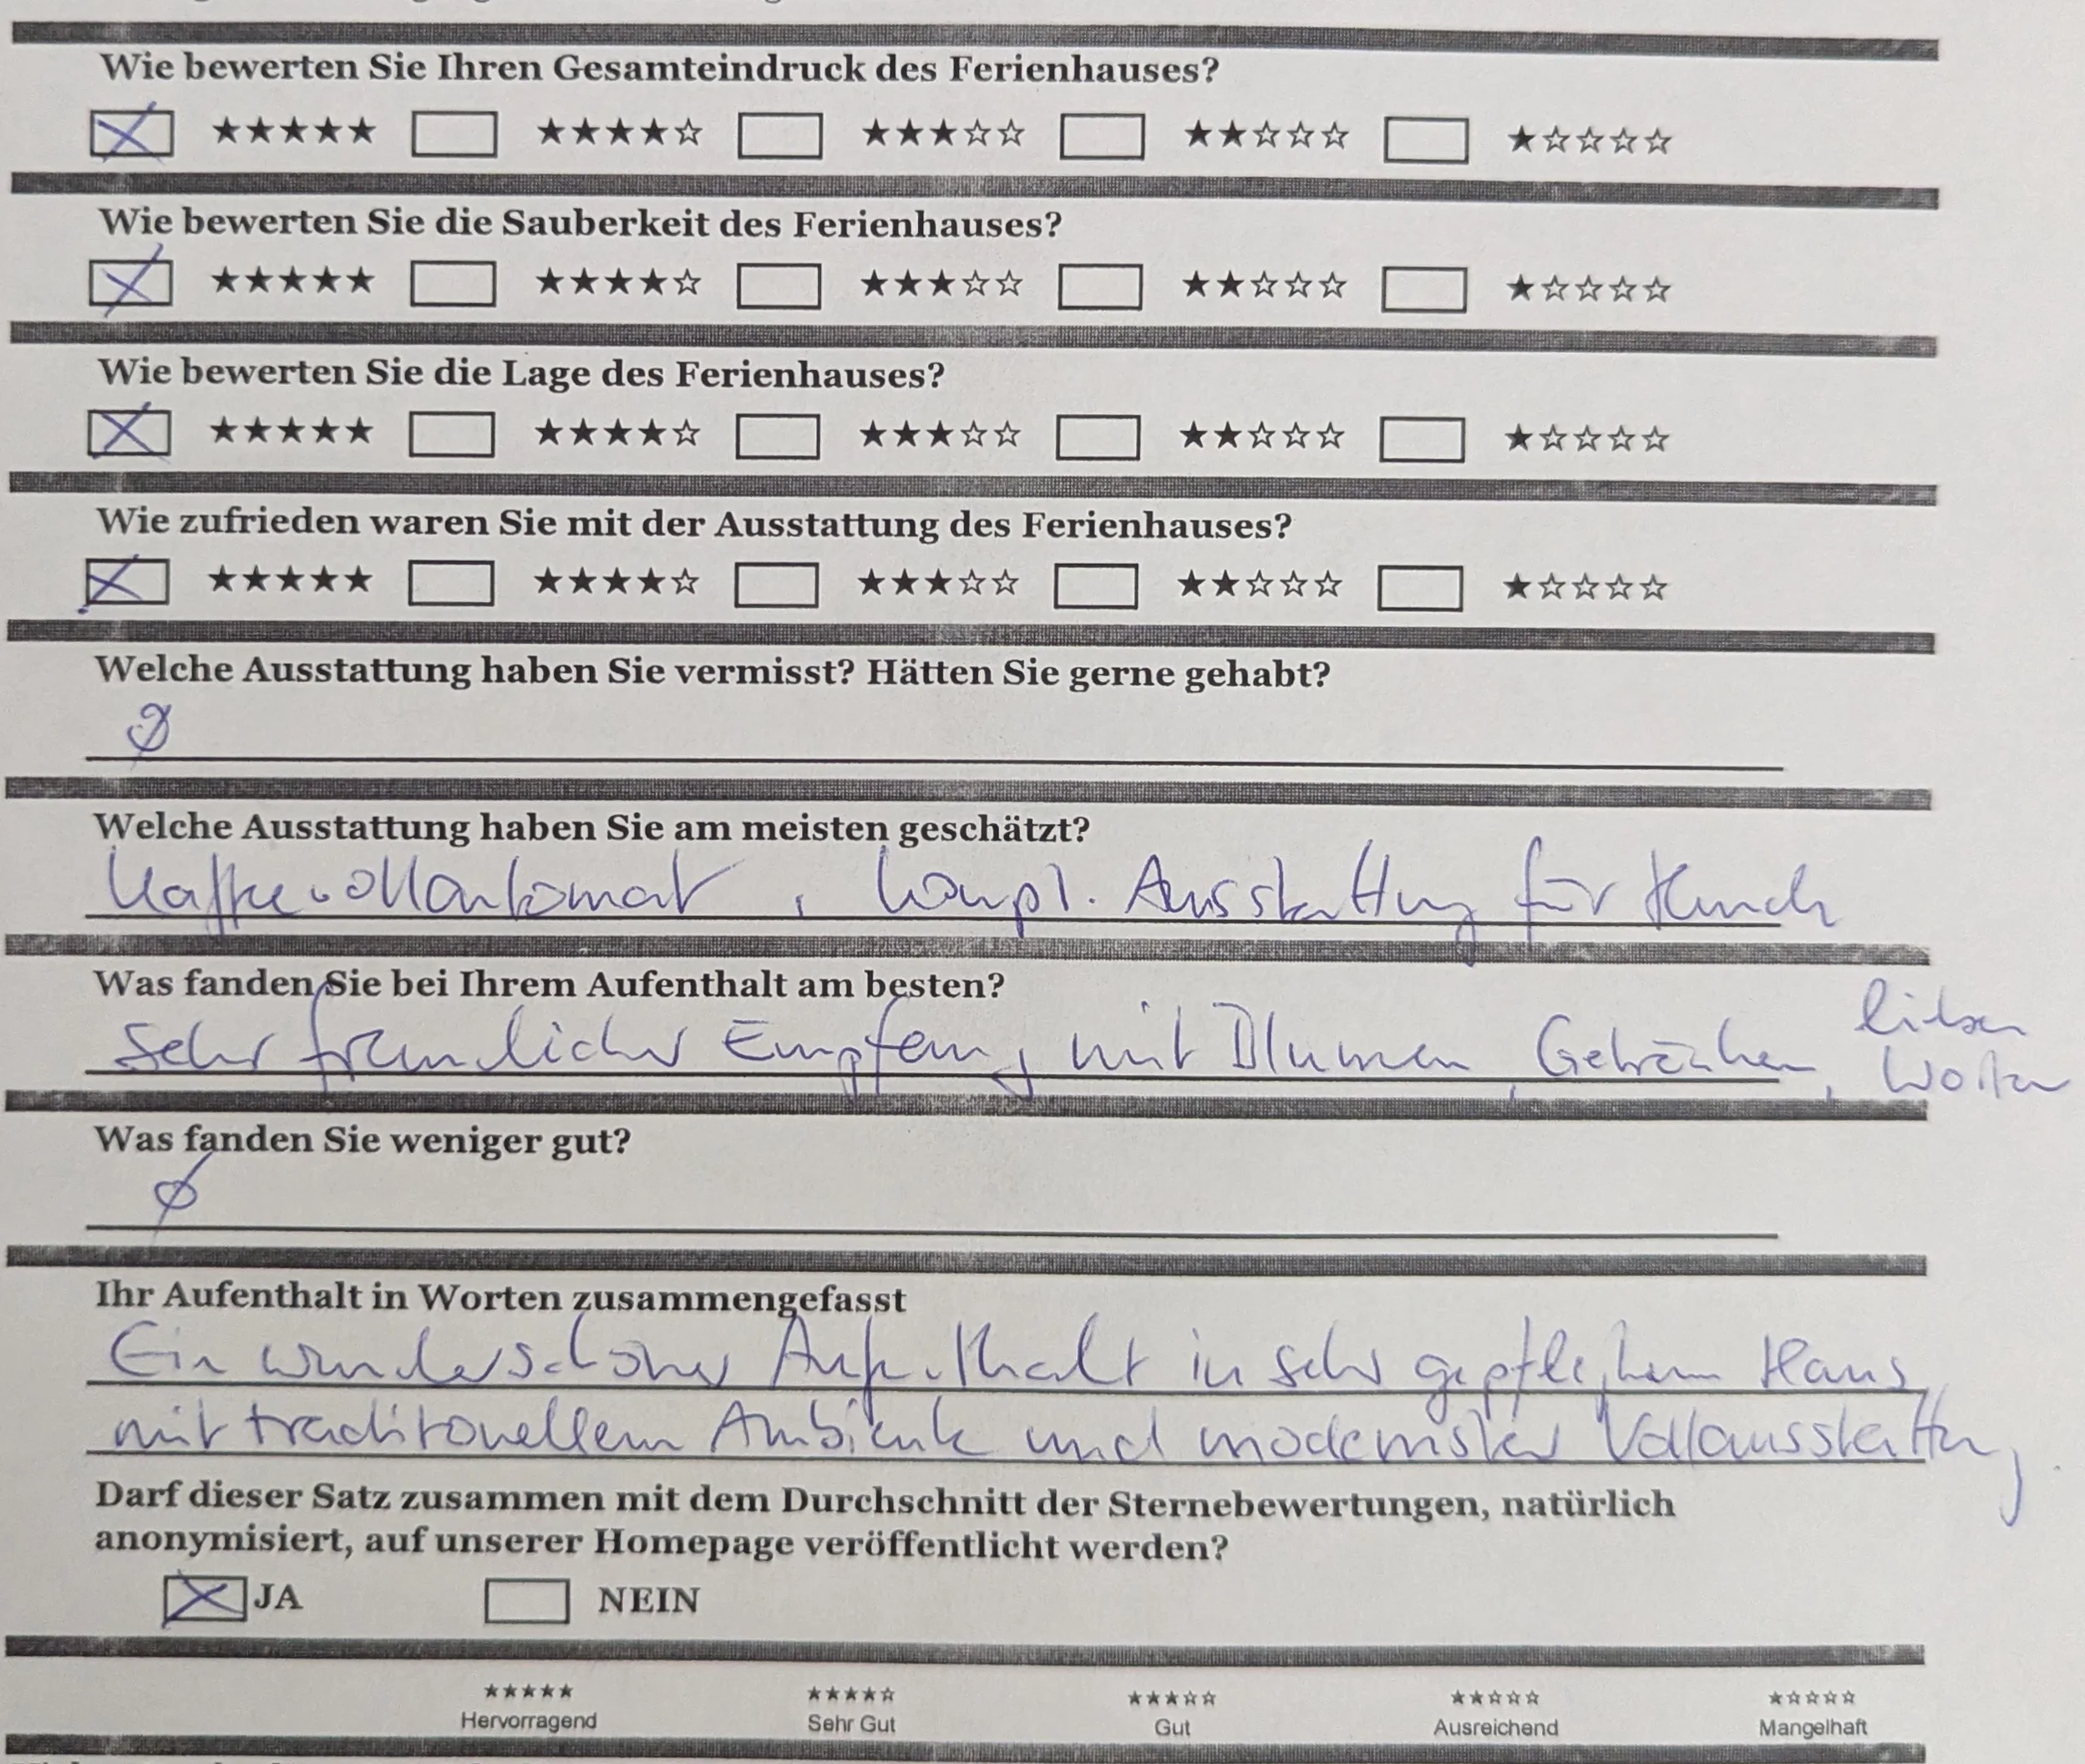 Wie bewerten Sie Ihren Gesamteindruck des Ferienhauses?
☒ ★★★★★ ☐ ★★★★☆ ☐ ★★★☆☆ ☐ ★★☆☆☆ ☐ ★☆☆☆☆
Wie bewerten Sie die Sauberkeit des Ferienhauses?
☒ ★★★★★ ☐ ★★★★☆ ☐ ★★★☆☆ ☐ ★★☆☆☆ ☐ ★☆☆☆☆
Wie bewerten Sie die Lage des Ferienhauses?
☒ ★★★★★ ☐ ★★★★☆ ☐ ★★★☆☆ ☐ ★★☆☆☆ ☐ ★☆☆☆☆
Wie zufrieden waren Sie mit der Ausstattung des Ferienhauses?
☒ ★★★★★ ☐ ★★★★☆ ☐ ★★★☆☆ ☐ ★★☆☆☆ ☐ ★☆☆☆☆
Welche Ausstattung haben Sie vermisst? Hätten Sie gerne gehabt?
Ø
Welche Ausstattung haben Sie am meisten geschätzt?
Kaffeevollautomat, kompl. Ausstattung für Hunde
Was fanden Sie bei Ihrem Aufenthalt am besten?
Sehr freundlicher Empfang mit Blumen, Getränken, lieben
Worten
Was fanden Sie weniger gut?
Ø
Ihr Aufenthalt in Worten zusammengefasst
Ein wunderschöner Aufenthalt in sehr gepflegtem Haus
mit traditionellem Ambiente und modernster Vollausstattung
Darf dieser Satz zusammen mit dem Durchschnitt der Sternebewertungen, natürlich
anonymisiert, auf unserer Homepage veröffentlicht werden?
☒ JA ☐ NEIN
★★★★★ ★★★★☆ ★★★☆☆ ★★☆☆☆ ★☆☆☆☆
Hervorragend Sehr Gut Gut Ausreichend Mangelhaft